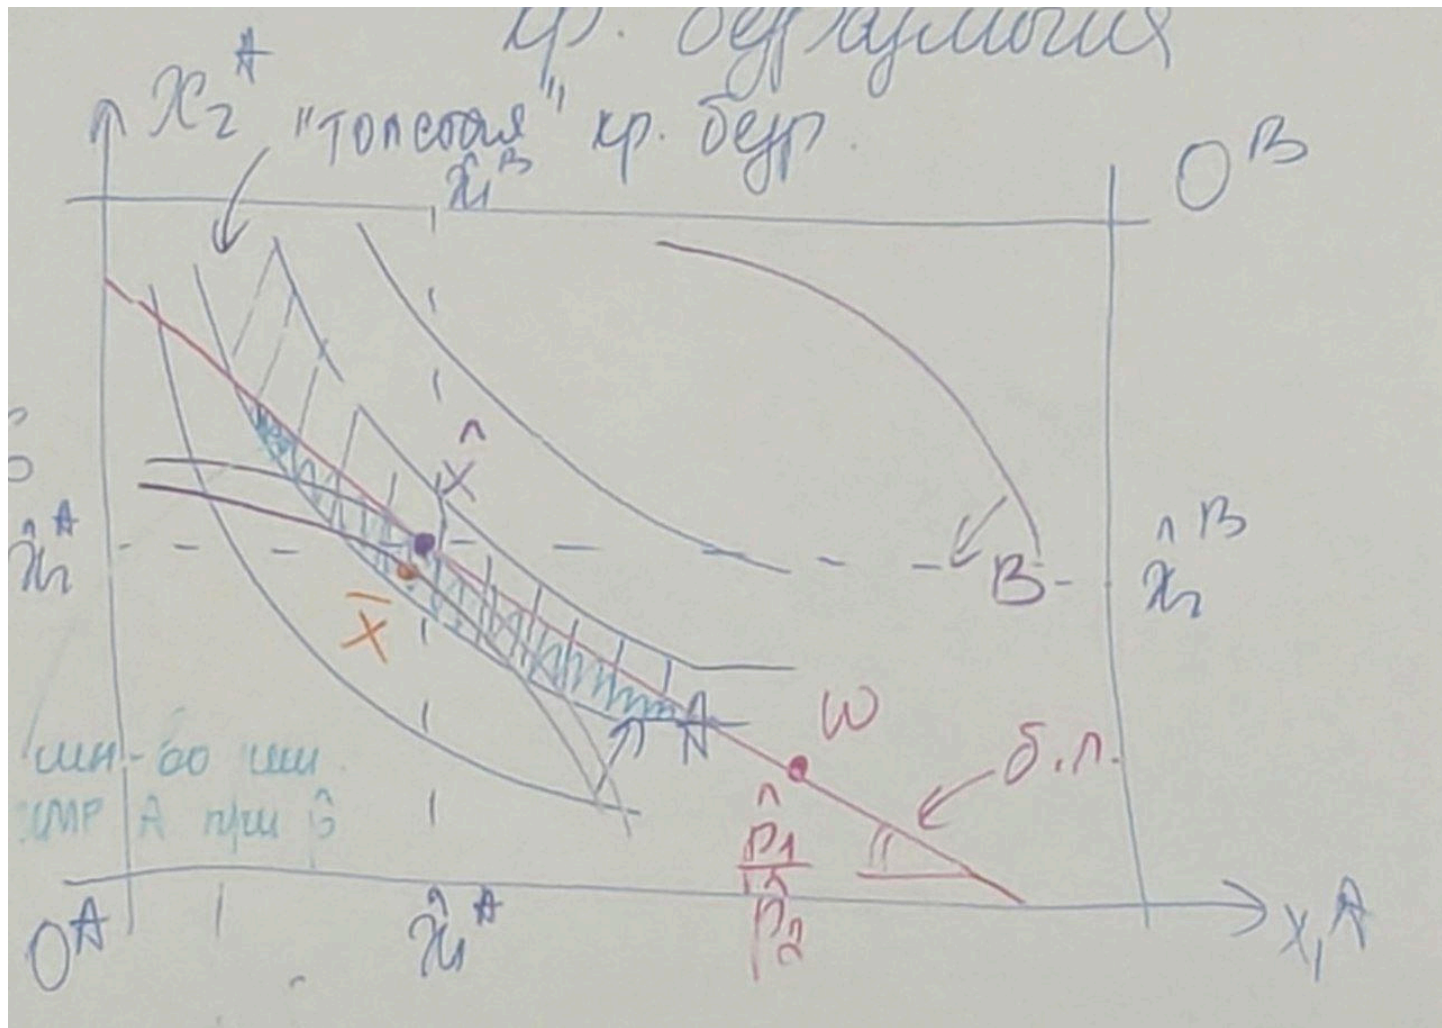 кр. безразличия
x₂ᴬ "толстая" кр. безр.
x̂₁ᴮ
Oᴮ
x̂
x̂₂ᴬ
B
x̂₂ᴮ
x̄
A
ω
б.л.
мн-во
A при p̂
p̂₁
p̂₂
Oᴬ
x̂₁ᴬ
x₁ᴬ